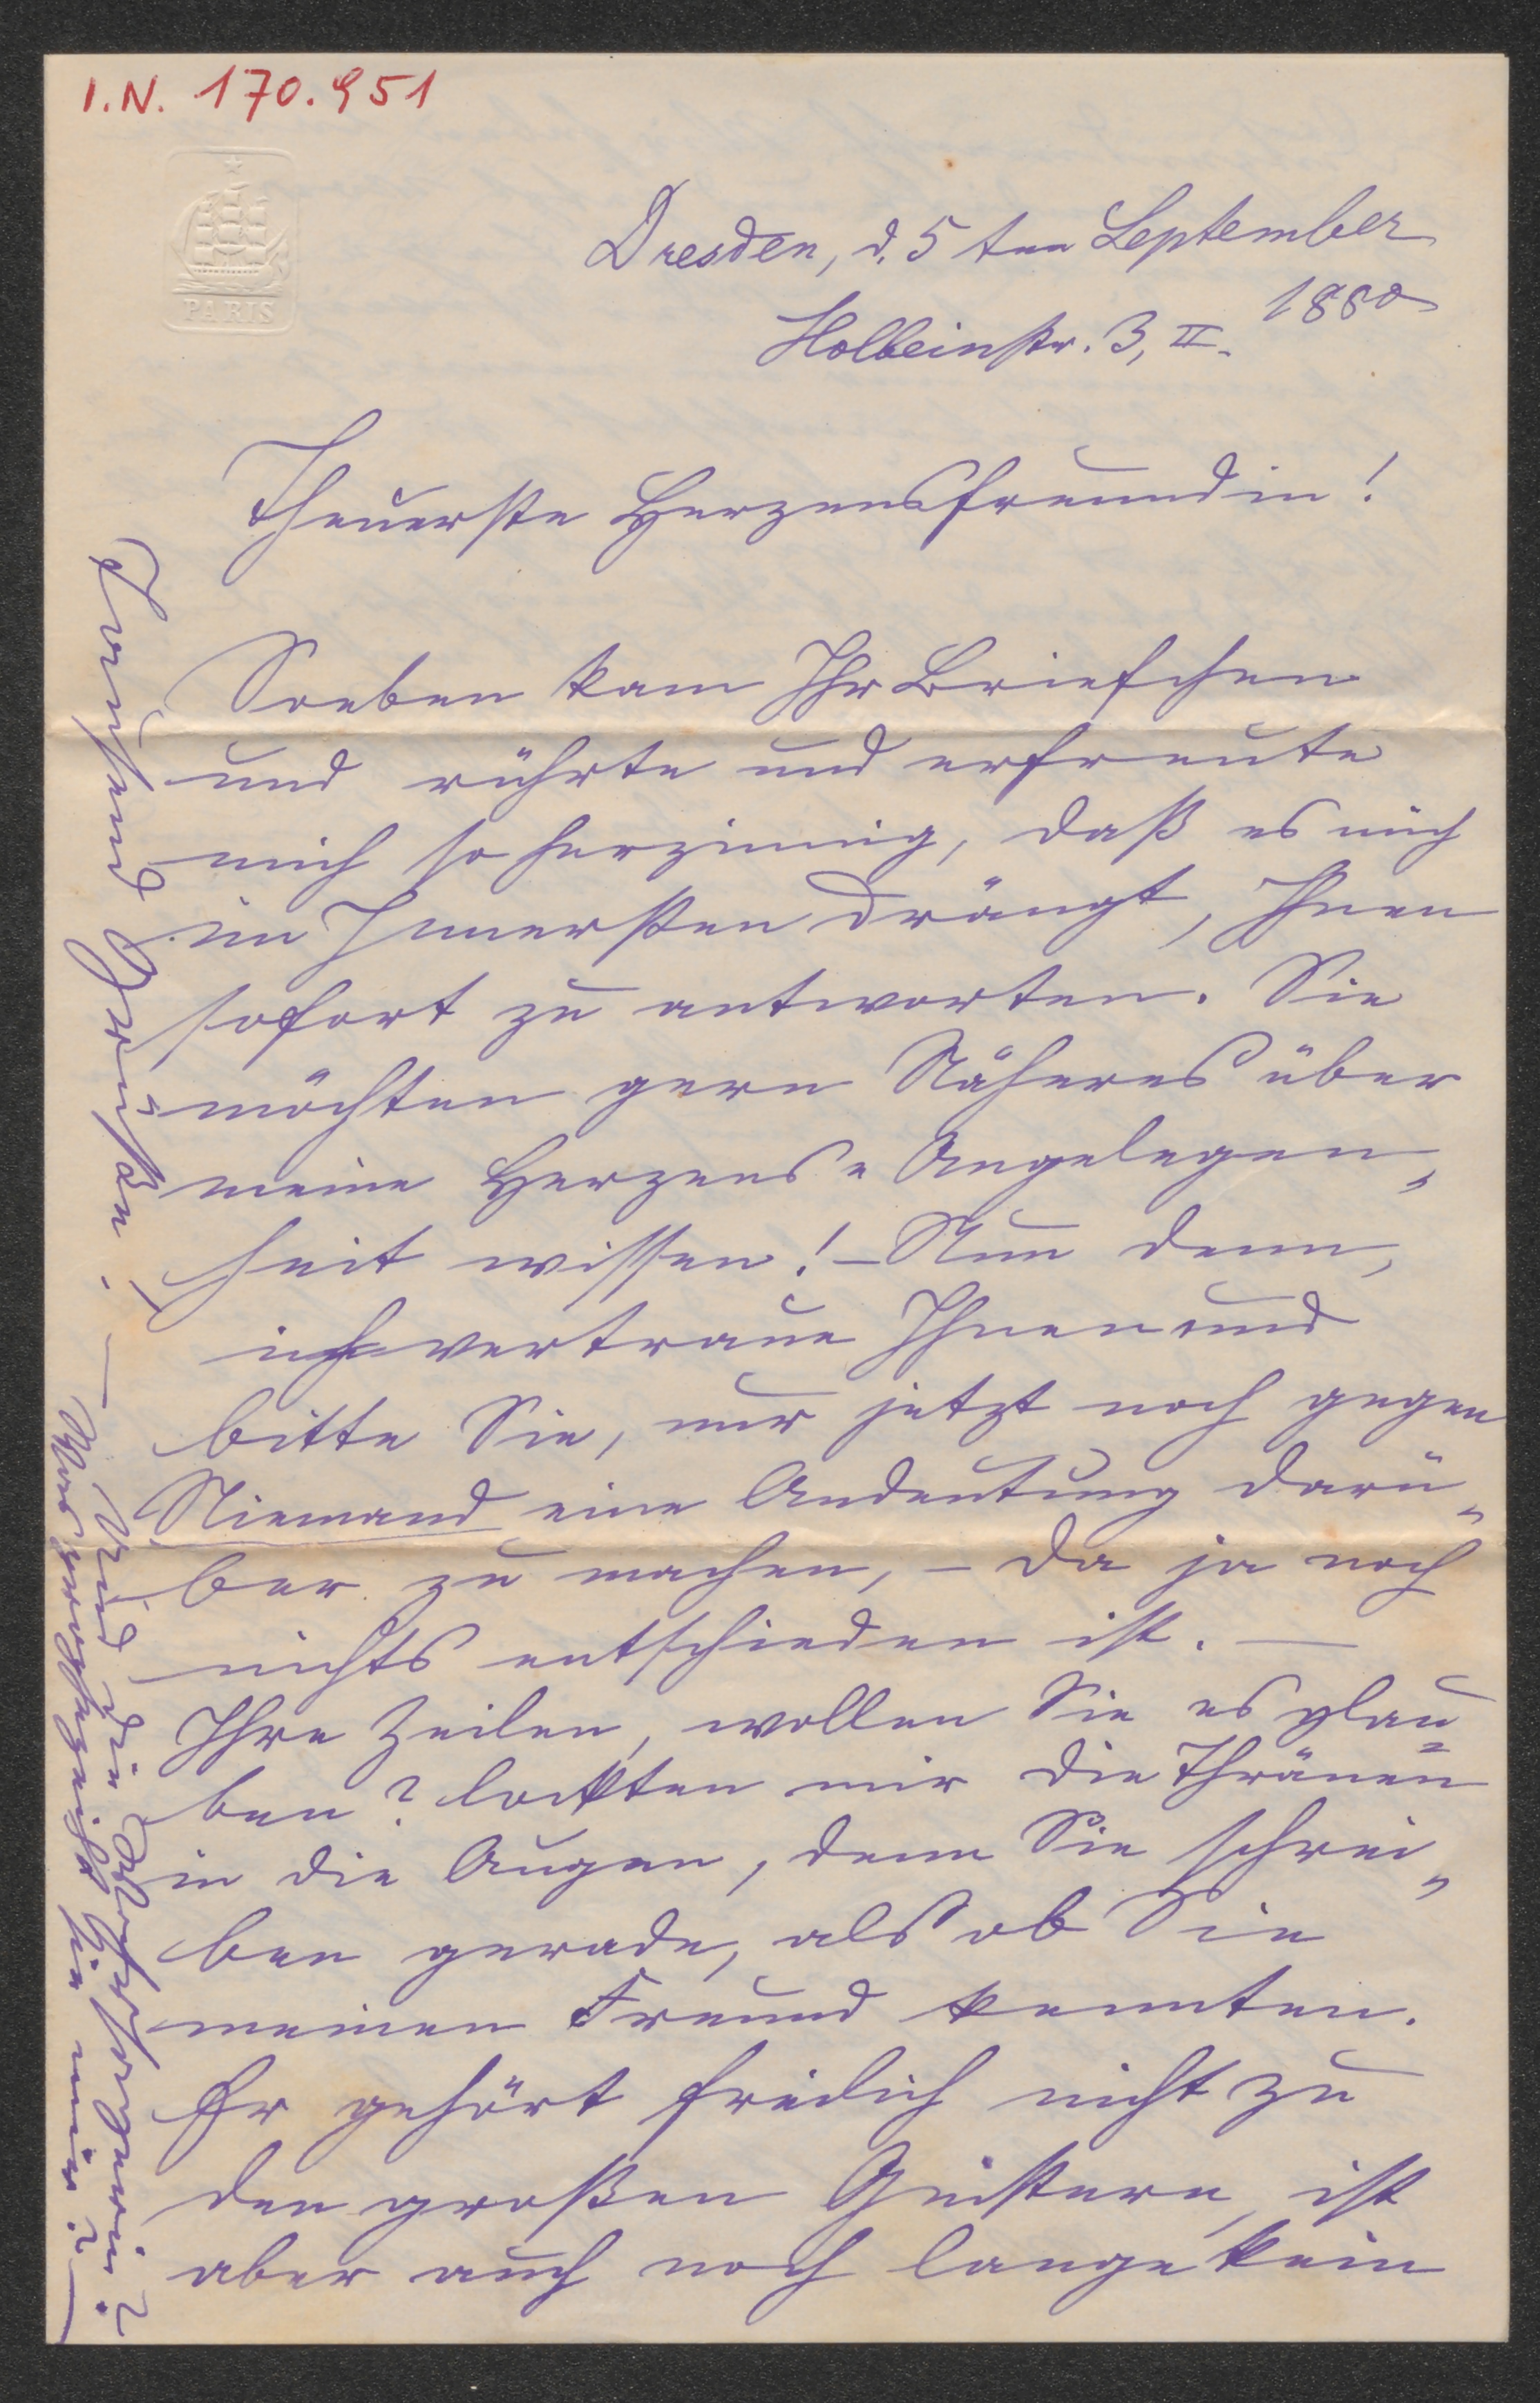 I.N. 170.951
PARIS
Dresden, d. 5 ten September
1880
Holbeinstr. 3, II.
Theuerste Herzensfreundin!
Soeben kam Ihr Briefchen
und rührte und erfreute
mich so herzinnig, daß es mich
im Innersten drängt, Ihnen
sofort zu antworten. Sie
möchten gern Näheres über
meine Herzens-Angelegen-
heit wissen! – Nun denn,
ich vertraue Ihnen und
bitte Sie, nur jetzt noch gegen
Niemand eine Andeutung darü-
ber zu machen, – da ja noch
nichts entschieden ist. —
Ihre Zeilen, wollen Sie es glau-
ben? lockten mir die Thränen
in die Augen, denn Sie schrei-
ben gerade, als ob Sie
meinen Freund kennten.
Er gehört freilich nicht zu
den großen Geistern, ist
aber auch noch lange kein
Tausend Grüße! —
Und die
sie mir? —